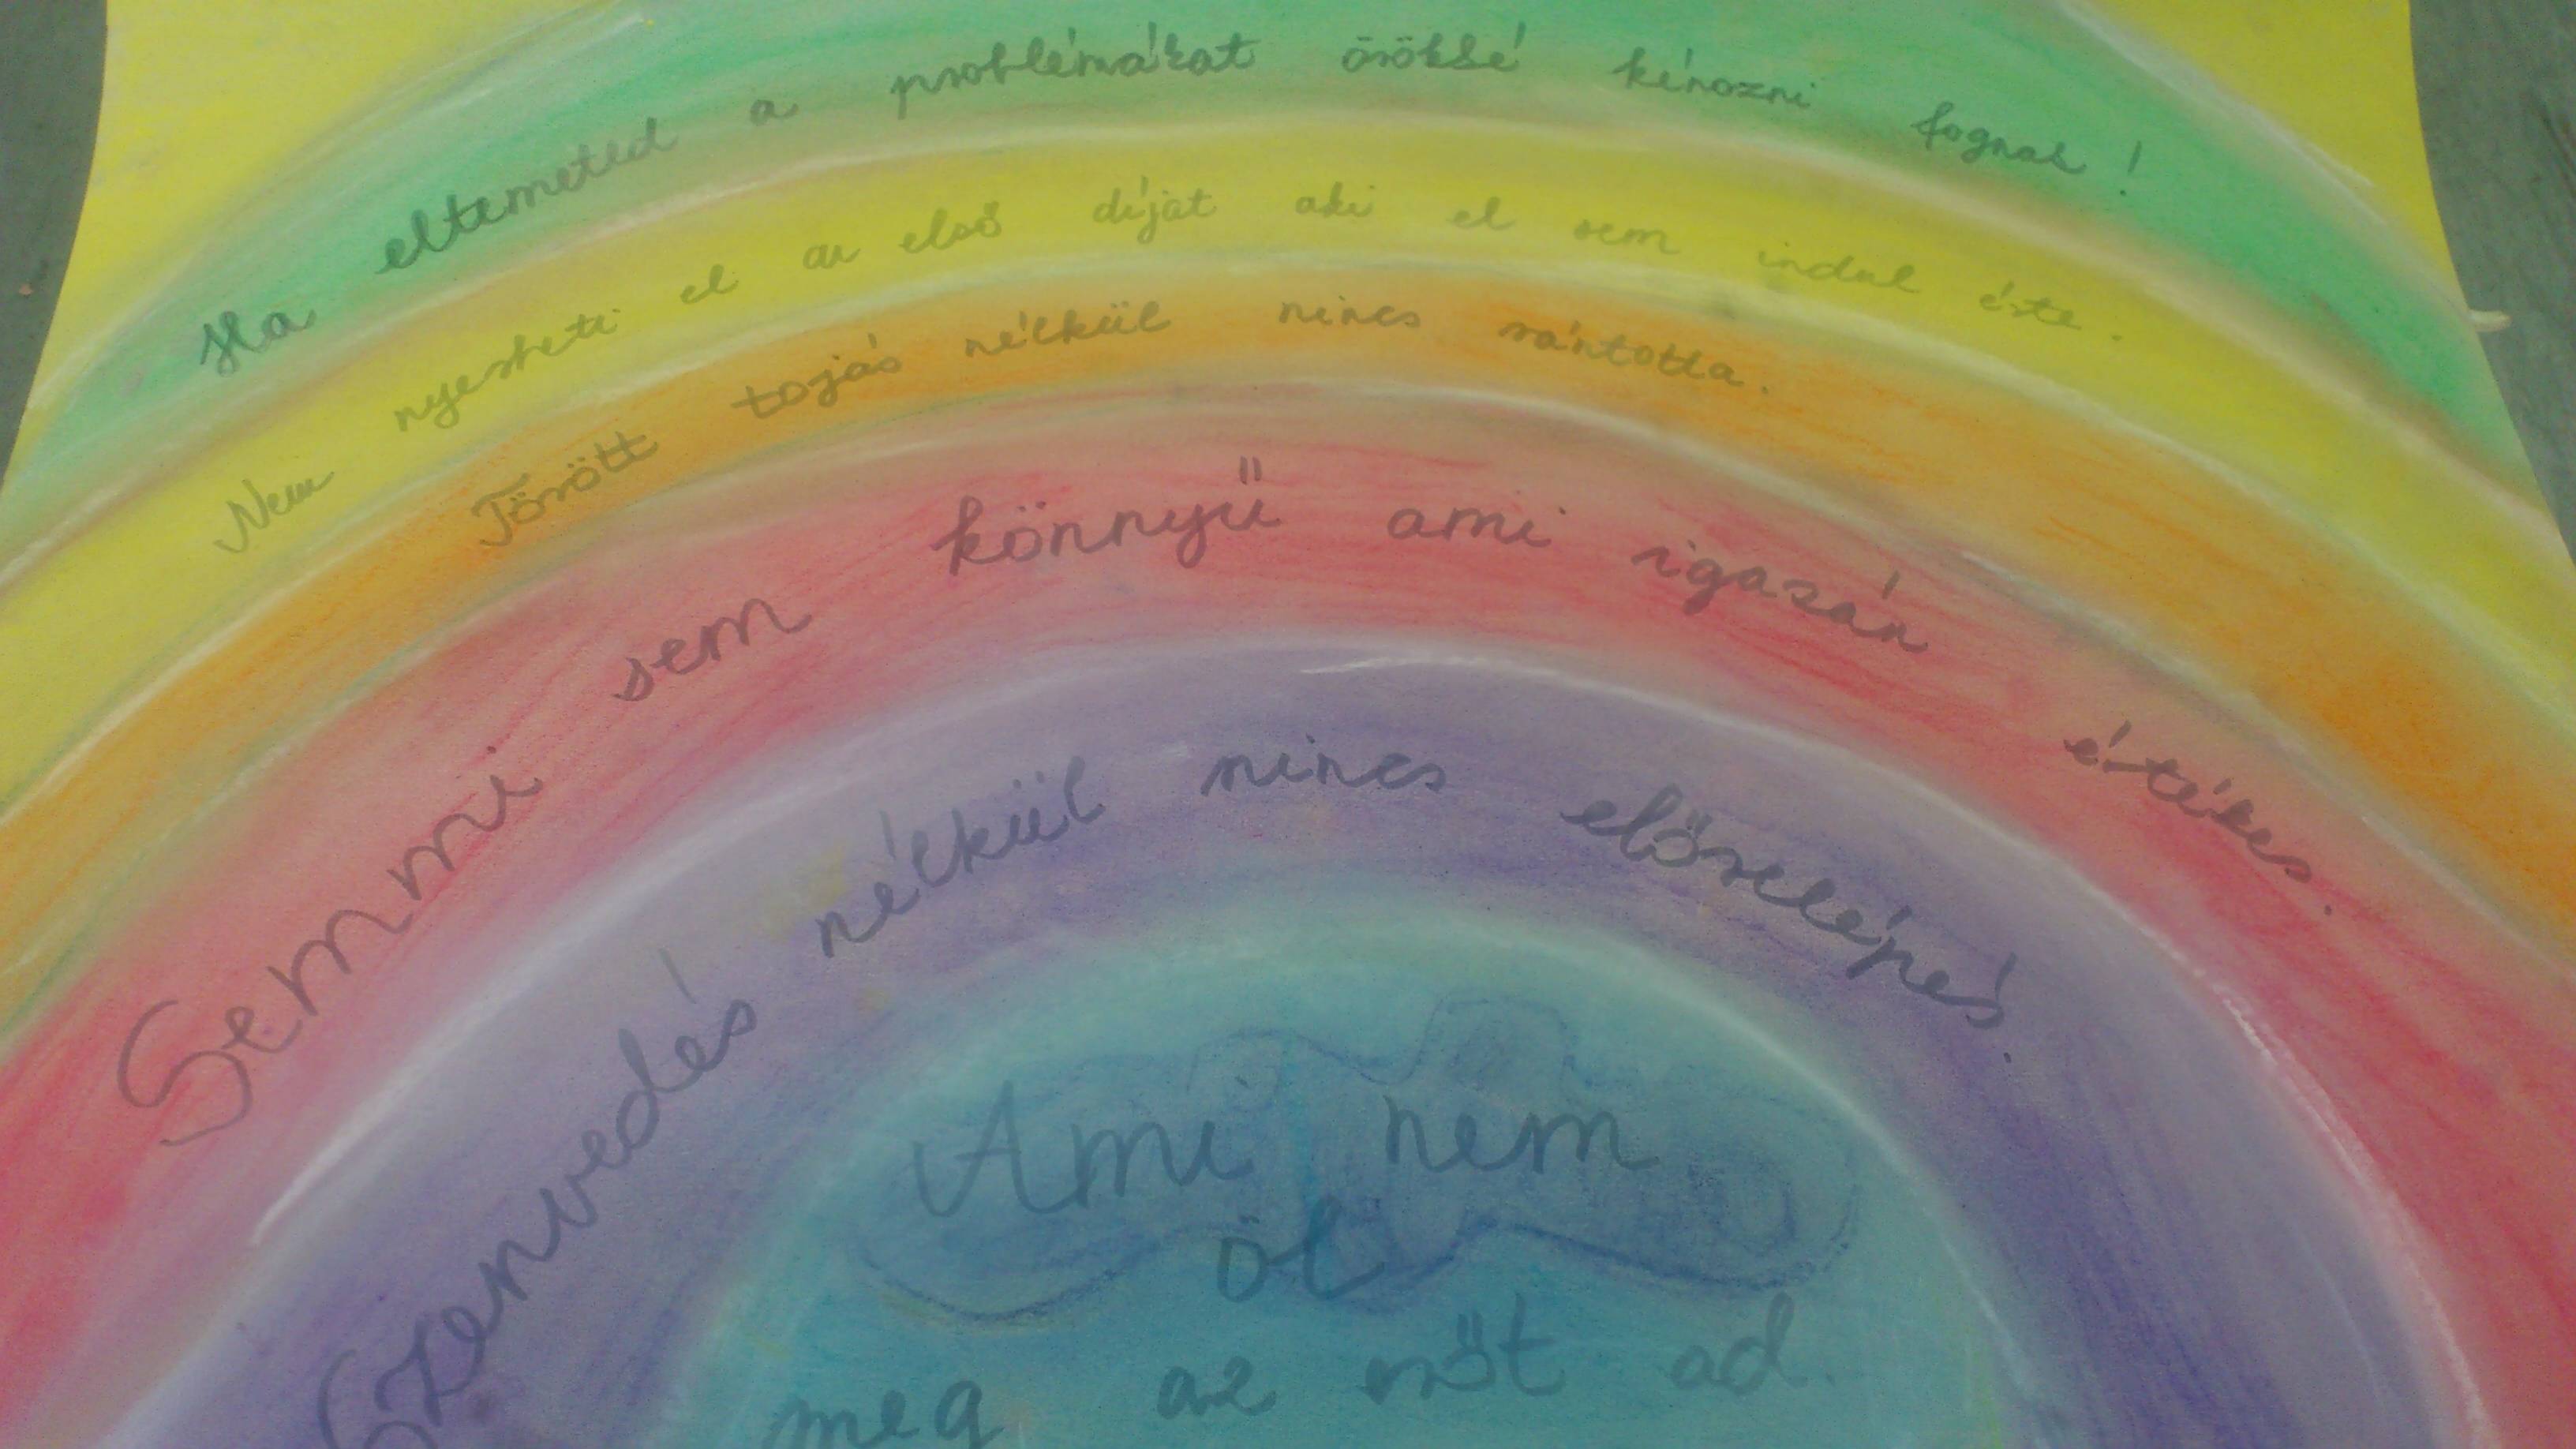 Ha eltemeted a problémákat örökké kínozni fognak!
Nem nyerheti el az első díját aki el sem indul érte.
Törött tojás nélkül nincs rántotta.
Semmi sem könnyű ami igazán értékes.
Szenvedés nélkül nincs előrelépés.
Ami nem
öl
meg az erőt ad.